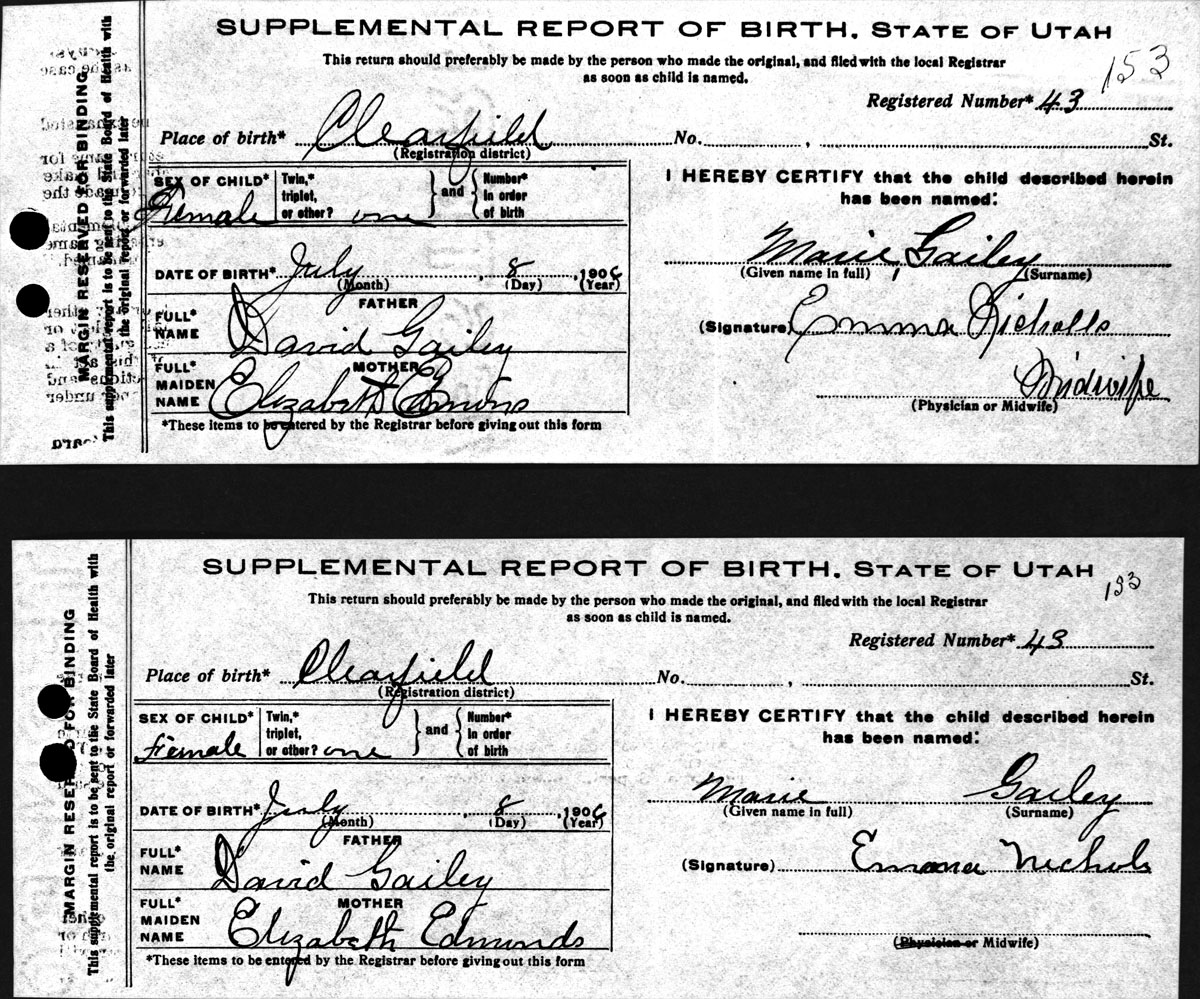 SUPPLEMENTAL REPORT OF BIRTH. STATE OF UTAH
153
This return should preferably be made by the person who made the original, and filed with the local Registrar
as soon as child is named.
Registered Number* 43
Place of birth* Clearfield No. , St.
(Registration district)
SEX OF CHILD* Female
Twin,* triplet, or other? one
and
Number* in order of birth
I HEREBY CERTIFY that the child described herein
has been named:
DATE OF BIRTH* July , 8 , 1906
(Month) (Day) (Year)
Marie, Gailey
(Given name in full) (Surname)
FATHER
FULL* NAME David Gailey
(Signature) Emma Nicholls
MOTHER
FULL* MAIDEN NAME Elizabeth
Midwife
(Physician or Midwife)
*These items to be entered by the Registrar before giving out this form
MARGIN RESERVED FOR BINDING
This supplemental report is to be sent to the State Board of Health with
the original report or forwarded later
SUPPLEMENTAL REPORT OF BIRTH. STATE OF UTAH
This return should preferably be made by the person who made the original, and filed with the local Registrar
as soon as child is named.
Registered Number* 43
Place of birth* Clearfield No. , St.
(Registration district)
SEX OF CHILD* Female
Twin,* triplet, or other? one
and
Number* in order of birth
I HEREBY CERTIFY that the child described herein
has been named:
DATE OF BIRTH* July , 8 , 1906
(Month) (Day) (Year)
Marie Gailey
(Given name in full) (Surname)
FATHER
FULL* NAME David Gailey
(Signature) Emma Nichols
MOTHER
FULL* MAIDEN NAME Elizabeth Edmunds
(Physician or Midwife)
*These items to be entered by the Registrar before giving out this form
MARGIN RESERVED FOR BINDING
This supplemental report is to be sent to the State Board of Health with
the original report or forwarded later